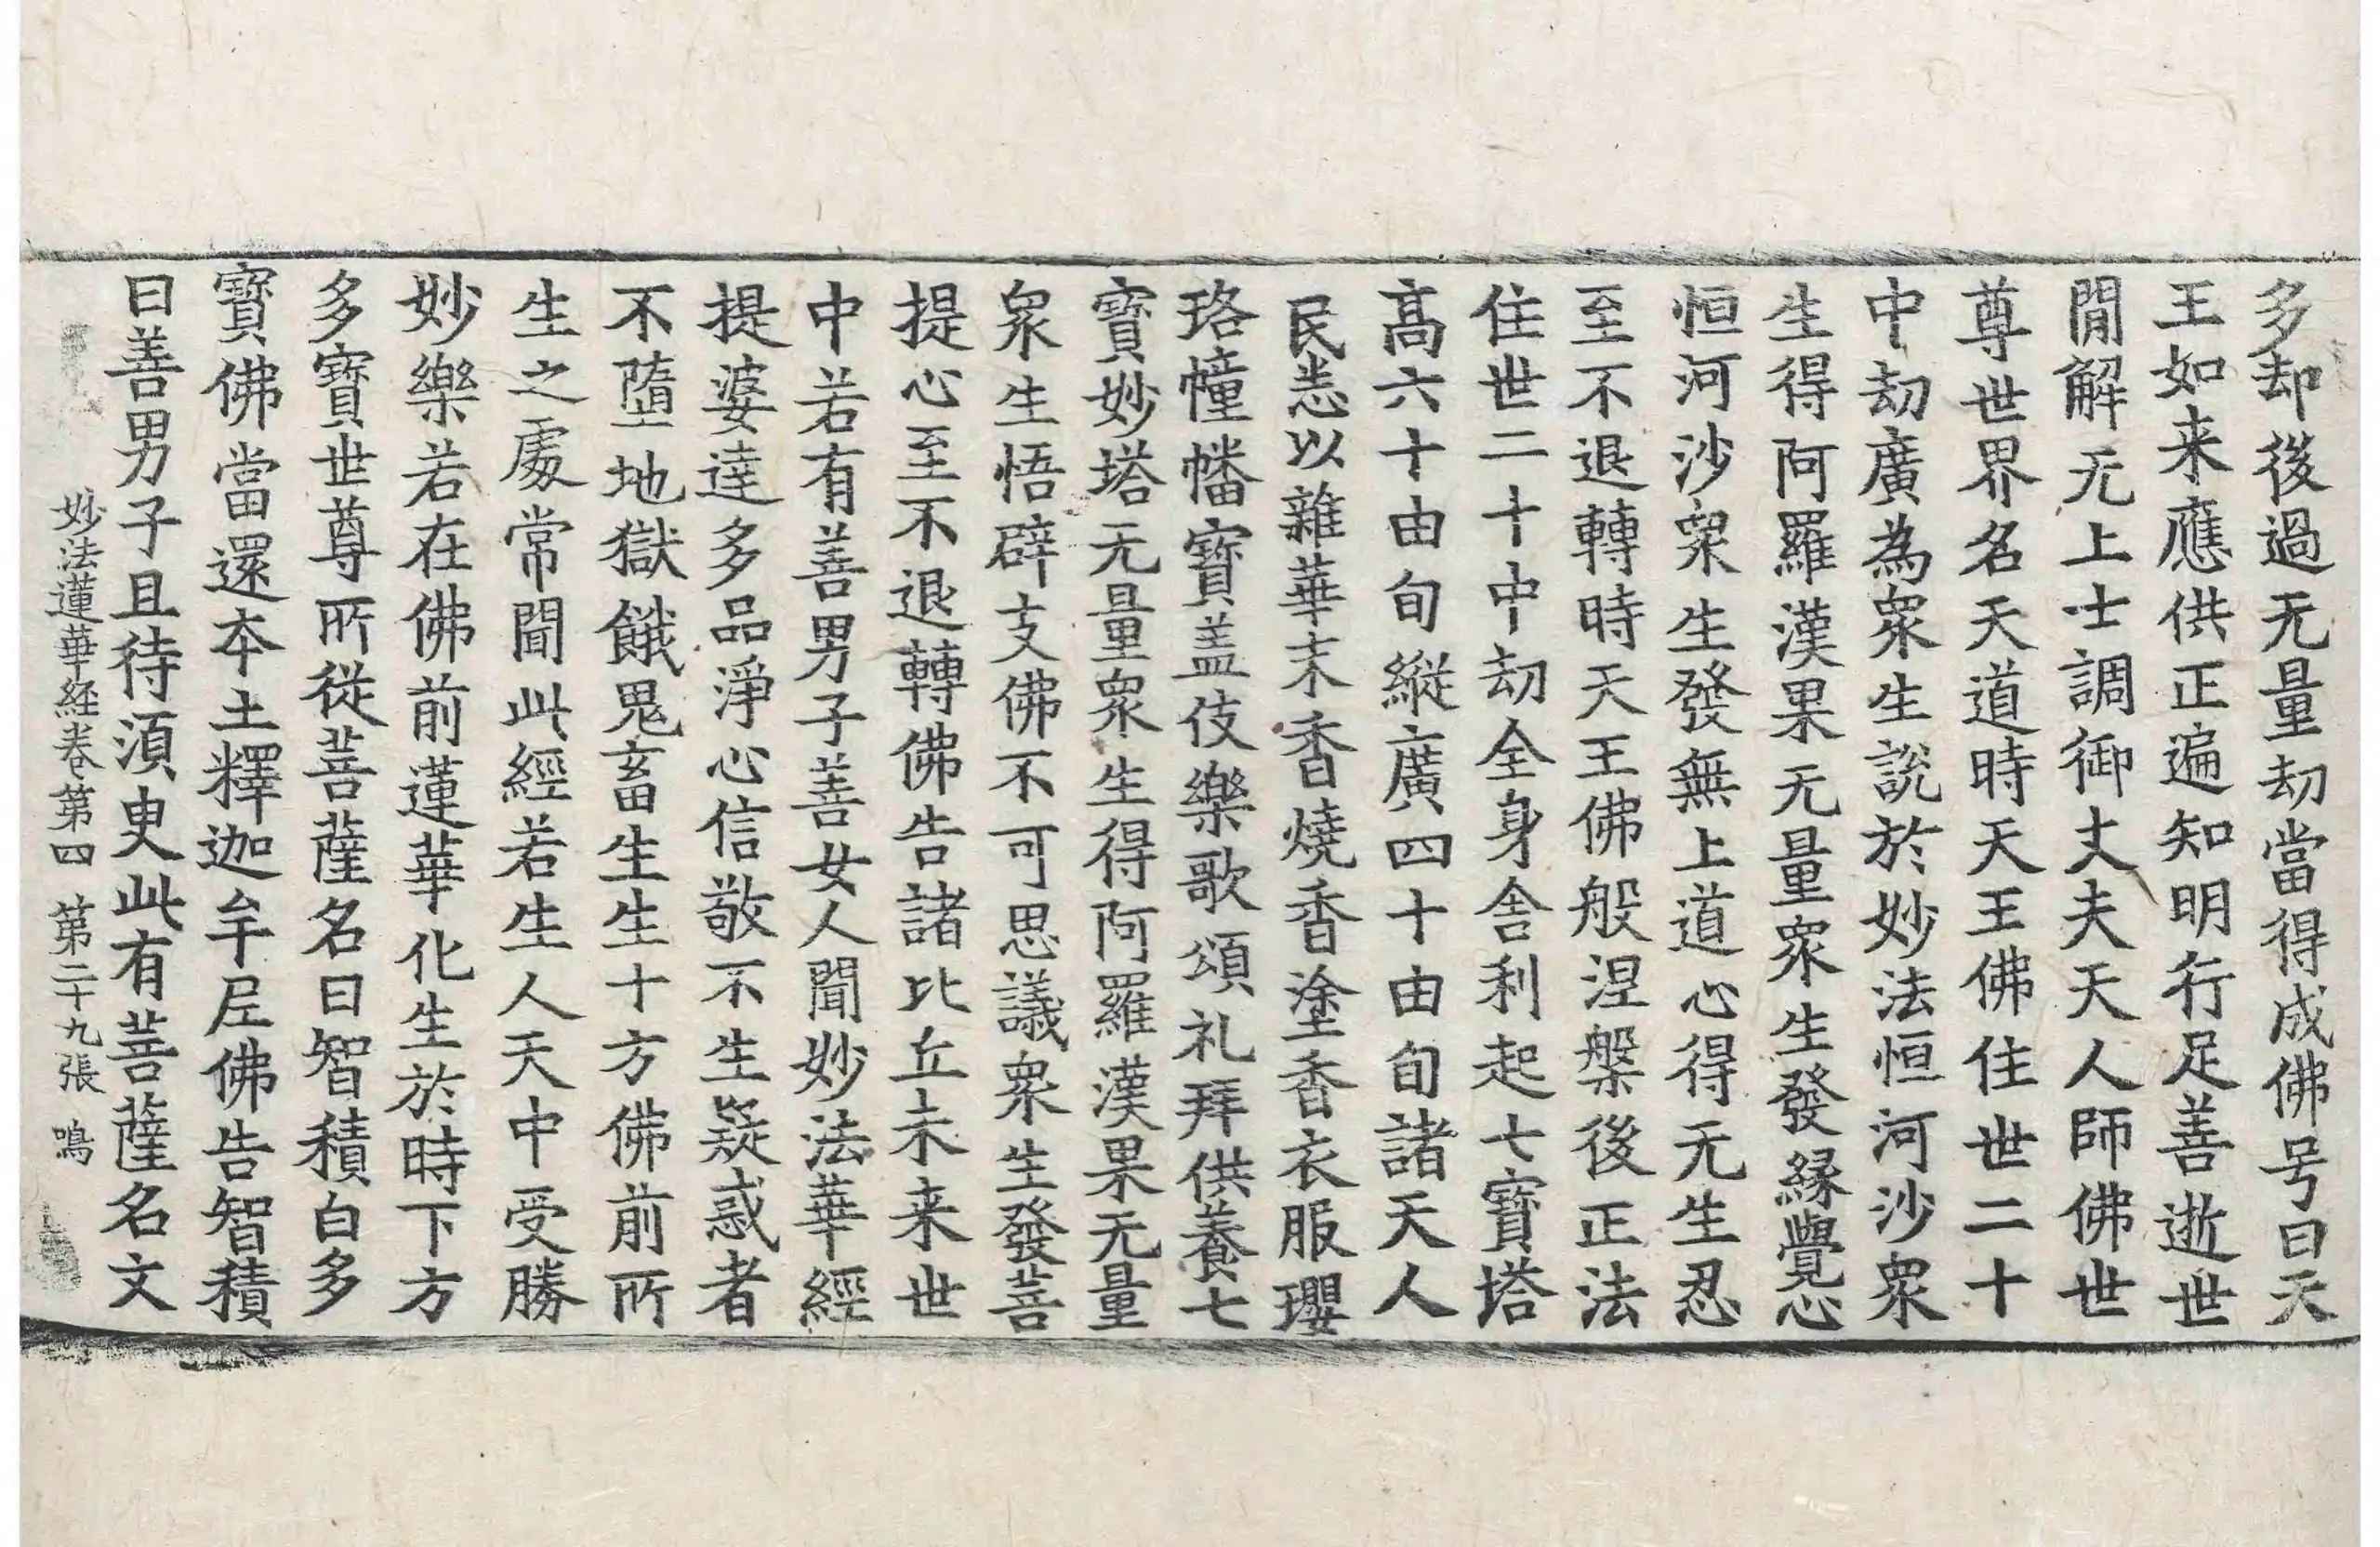 多却後過无量劫當得成佛号曰天
王如来應供正遍知明行足善逝世
閒解无上士調御丈夫天人師佛世
尊世界名天道時天王佛住世二十
中劫廣為衆生說於妙法恒河沙衆
生得阿羅漢果无量衆生發緣覺心
恒河沙衆生發無上道心得无生忍
至不退轉時天王佛般涅槃後正法
住世二十中劫全身舍利起七寶塔
髙六十由旬縱廣四十由旬諸天人
民悉以雜華末香燒香塗香衣服瓔
珞幢幡寶盖伎樂歌頌礼拜供養七
寶妙塔无量衆生得阿羅漢果无量
衆生悟辟支佛不可思議衆生發菩
提心至不退轉佛告諸比丘未来世
中若有善男子善女人聞妙法華經
提婆達多品淨心信敬不生疑惑者
不墮地獄餓鬼畜生生十方佛前所
生之處常聞此經若生人天中受勝
妙樂若在佛前蓮華化生於時下方
多寶世尊所從菩薩名曰智積白多
寶佛當還本土釋迦牟尼佛告智積
曰善男子且待須臾此有菩薩名文
妙法蓮華経卷第四 第二十九張 鳴